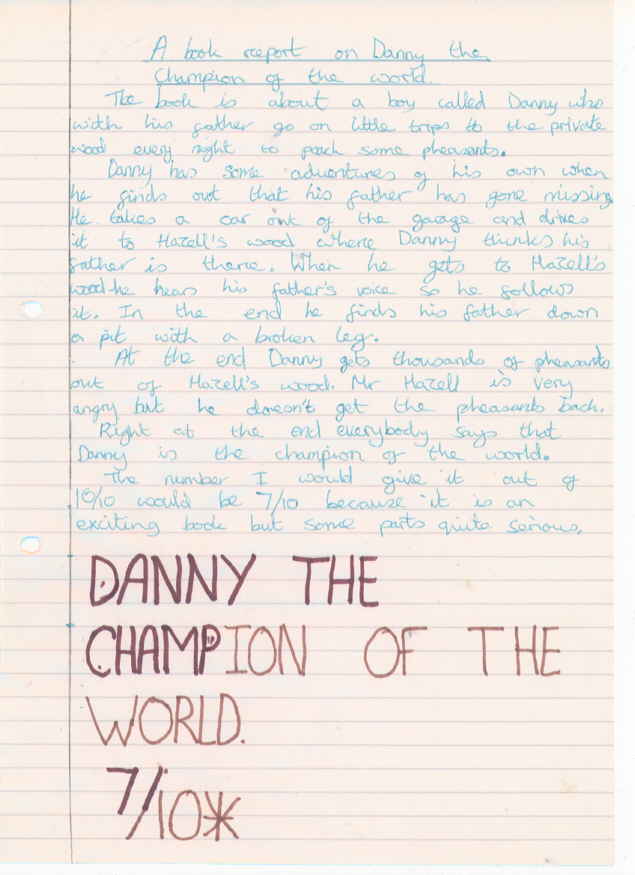 A book report on Danny the
Champion of the world.
The book is about a boy called Danny who
with his father go on little trips to the private
wood every night to poach some pheasants.
Danny has some adventures of his own when
he finds out that his father has gone missing
He takes a car out of the garage and drives
it to Hazell's wood where Danny thinks his
father is there. When he gets to Hazell's
wood he hears his father's voice so he follows
it. In the end he finds his father down
a pit with a broken leg.
At the end Danny gets thousands of pheasants
out of Hazell's wood. Mr Hazell is very
angry but he doesn't get the pheasants back.
Right at the end everybody says that
Danny is the champion of the world.
The number I would give it out of
10/10 would be 7/10 because it is an
exciting book but some parts quite serious.
DANNY THE
CHAMPION OF THE
WORLD.
7/10*